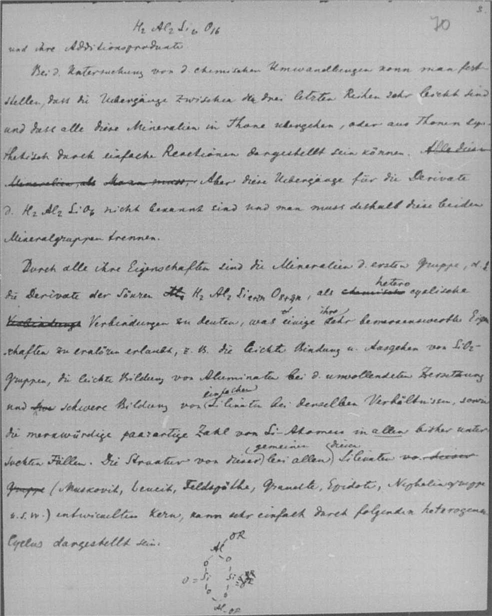 3.
70
H2 Al2 Si6 O16
und ihre Additionsproducte
Bei d. Untersuchung von d. chemischen Umwandlungen kann man fest-
stellen, dass die Uebergänge zwischen die drei letzten Reihen sehr leicht sind
und dass alle diese Mineralien in Thone übergehen, oder aus Thonen syn-
thetisch durch einfache Reactionen dargestellt sein können. Alle diese
Mineralien, als Man muss, Aber diese Uebergänge für die Derivate
d. H2 Al2 SiO6 nicht bekannt sind und man muss deshalb diese beiden
Mineralgruppen trennen.
Durch alle ihre Eigenschaften sind die Mineralien d. ersten Gruppe, d. h.
hetero
die Derivate der Säuren H2 Al2 Si O, als chemische cyclische
Verbindungen Verbindungen zu deuten, was einige ihre sehr bemerkenswerthe Eigen-
schaften zu erklären erlaubt, z. B. die leichte Bindung u. Ausgehen von SiO2-
gruppen, die leichte Bildung von Aluminaten bei d. unvollendeten Zersetzung
einfachen
und schwere Bildung von Silicaten bei derselben Verhältnissen, sowie
die merkwürdige paarartige Zahl von Si-Atomen in allen bisher unter-
suchten Fällen. Die Structur von dieser
gemeine
bei allen
diesen
Silicaten von dieser
Gruppe (Muskovit, Leucit, Feldspäthe, Granate, Epidote, Nephelingruppe
u.s.w.) entwickelten Kern, kann sehr einfach durch folgenden heterogenen
Cyclus dargestellt sein.
OR
Al
O O
O = Si Si
O O
Al
OR